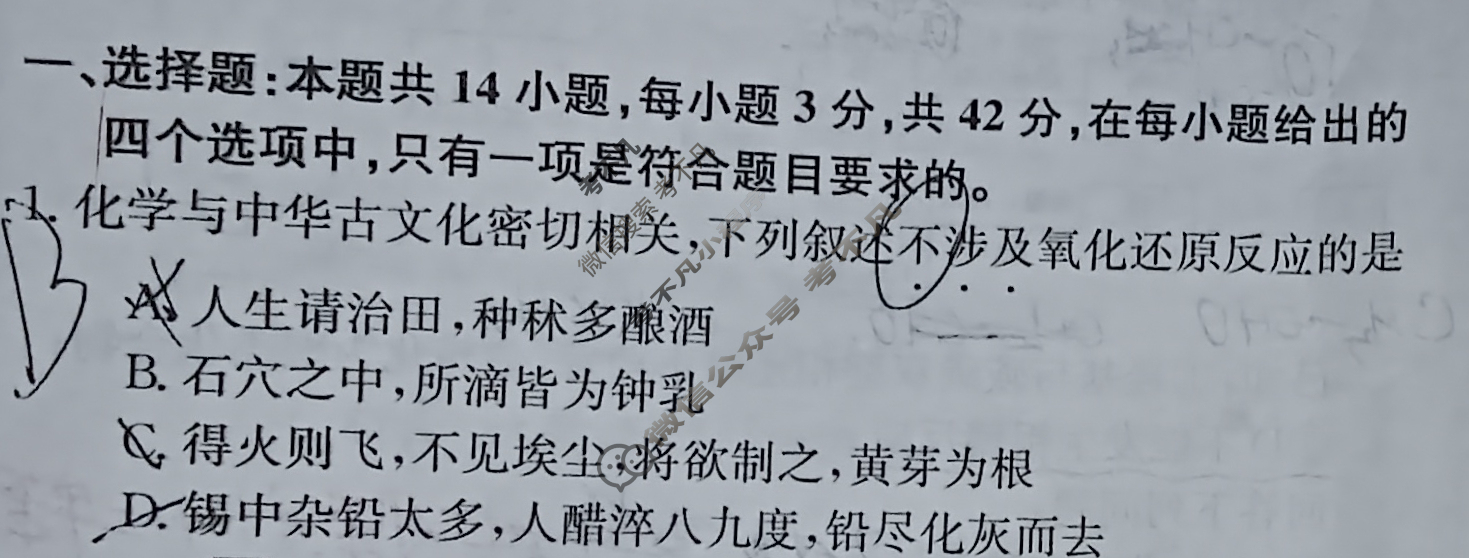 一、选择题:本题共 14 小题,每小题 3 分,共 42 分,在每小题给出的
四个选项中,只有一项是符合题目要求的。
B
1. 化学与中华古文化密切相关,下列叙述不涉及氧化还原反应的是
A. 人生请治田,种秫多酿酒
B. 石穴之中,所滴皆为钟乳
C. 得火则飞,不见埃尘,将欲制之,黄芽为根
D. 锡中杂铅太多,人醋淬八九度,铅尽化灰而去
微信搜索考不凡
微信公众号 考不凡